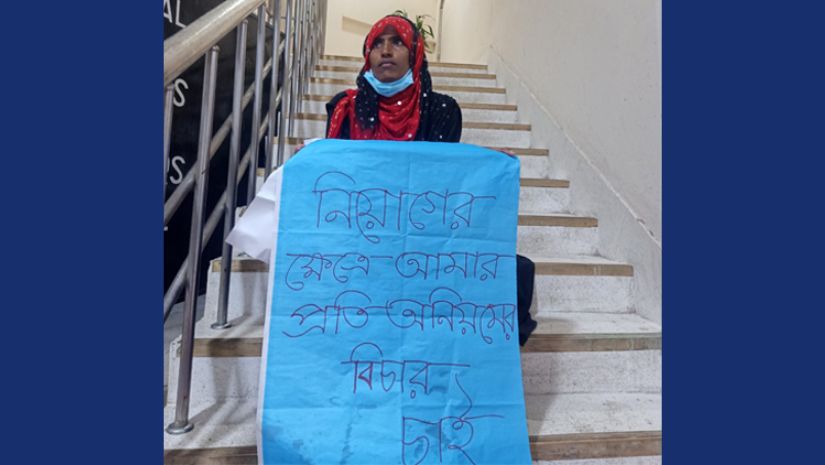 AL
S
S
নিয়োগের
ক্ষেত্রে আমার
প্রতি অনিয়মের
বিচার
চাই